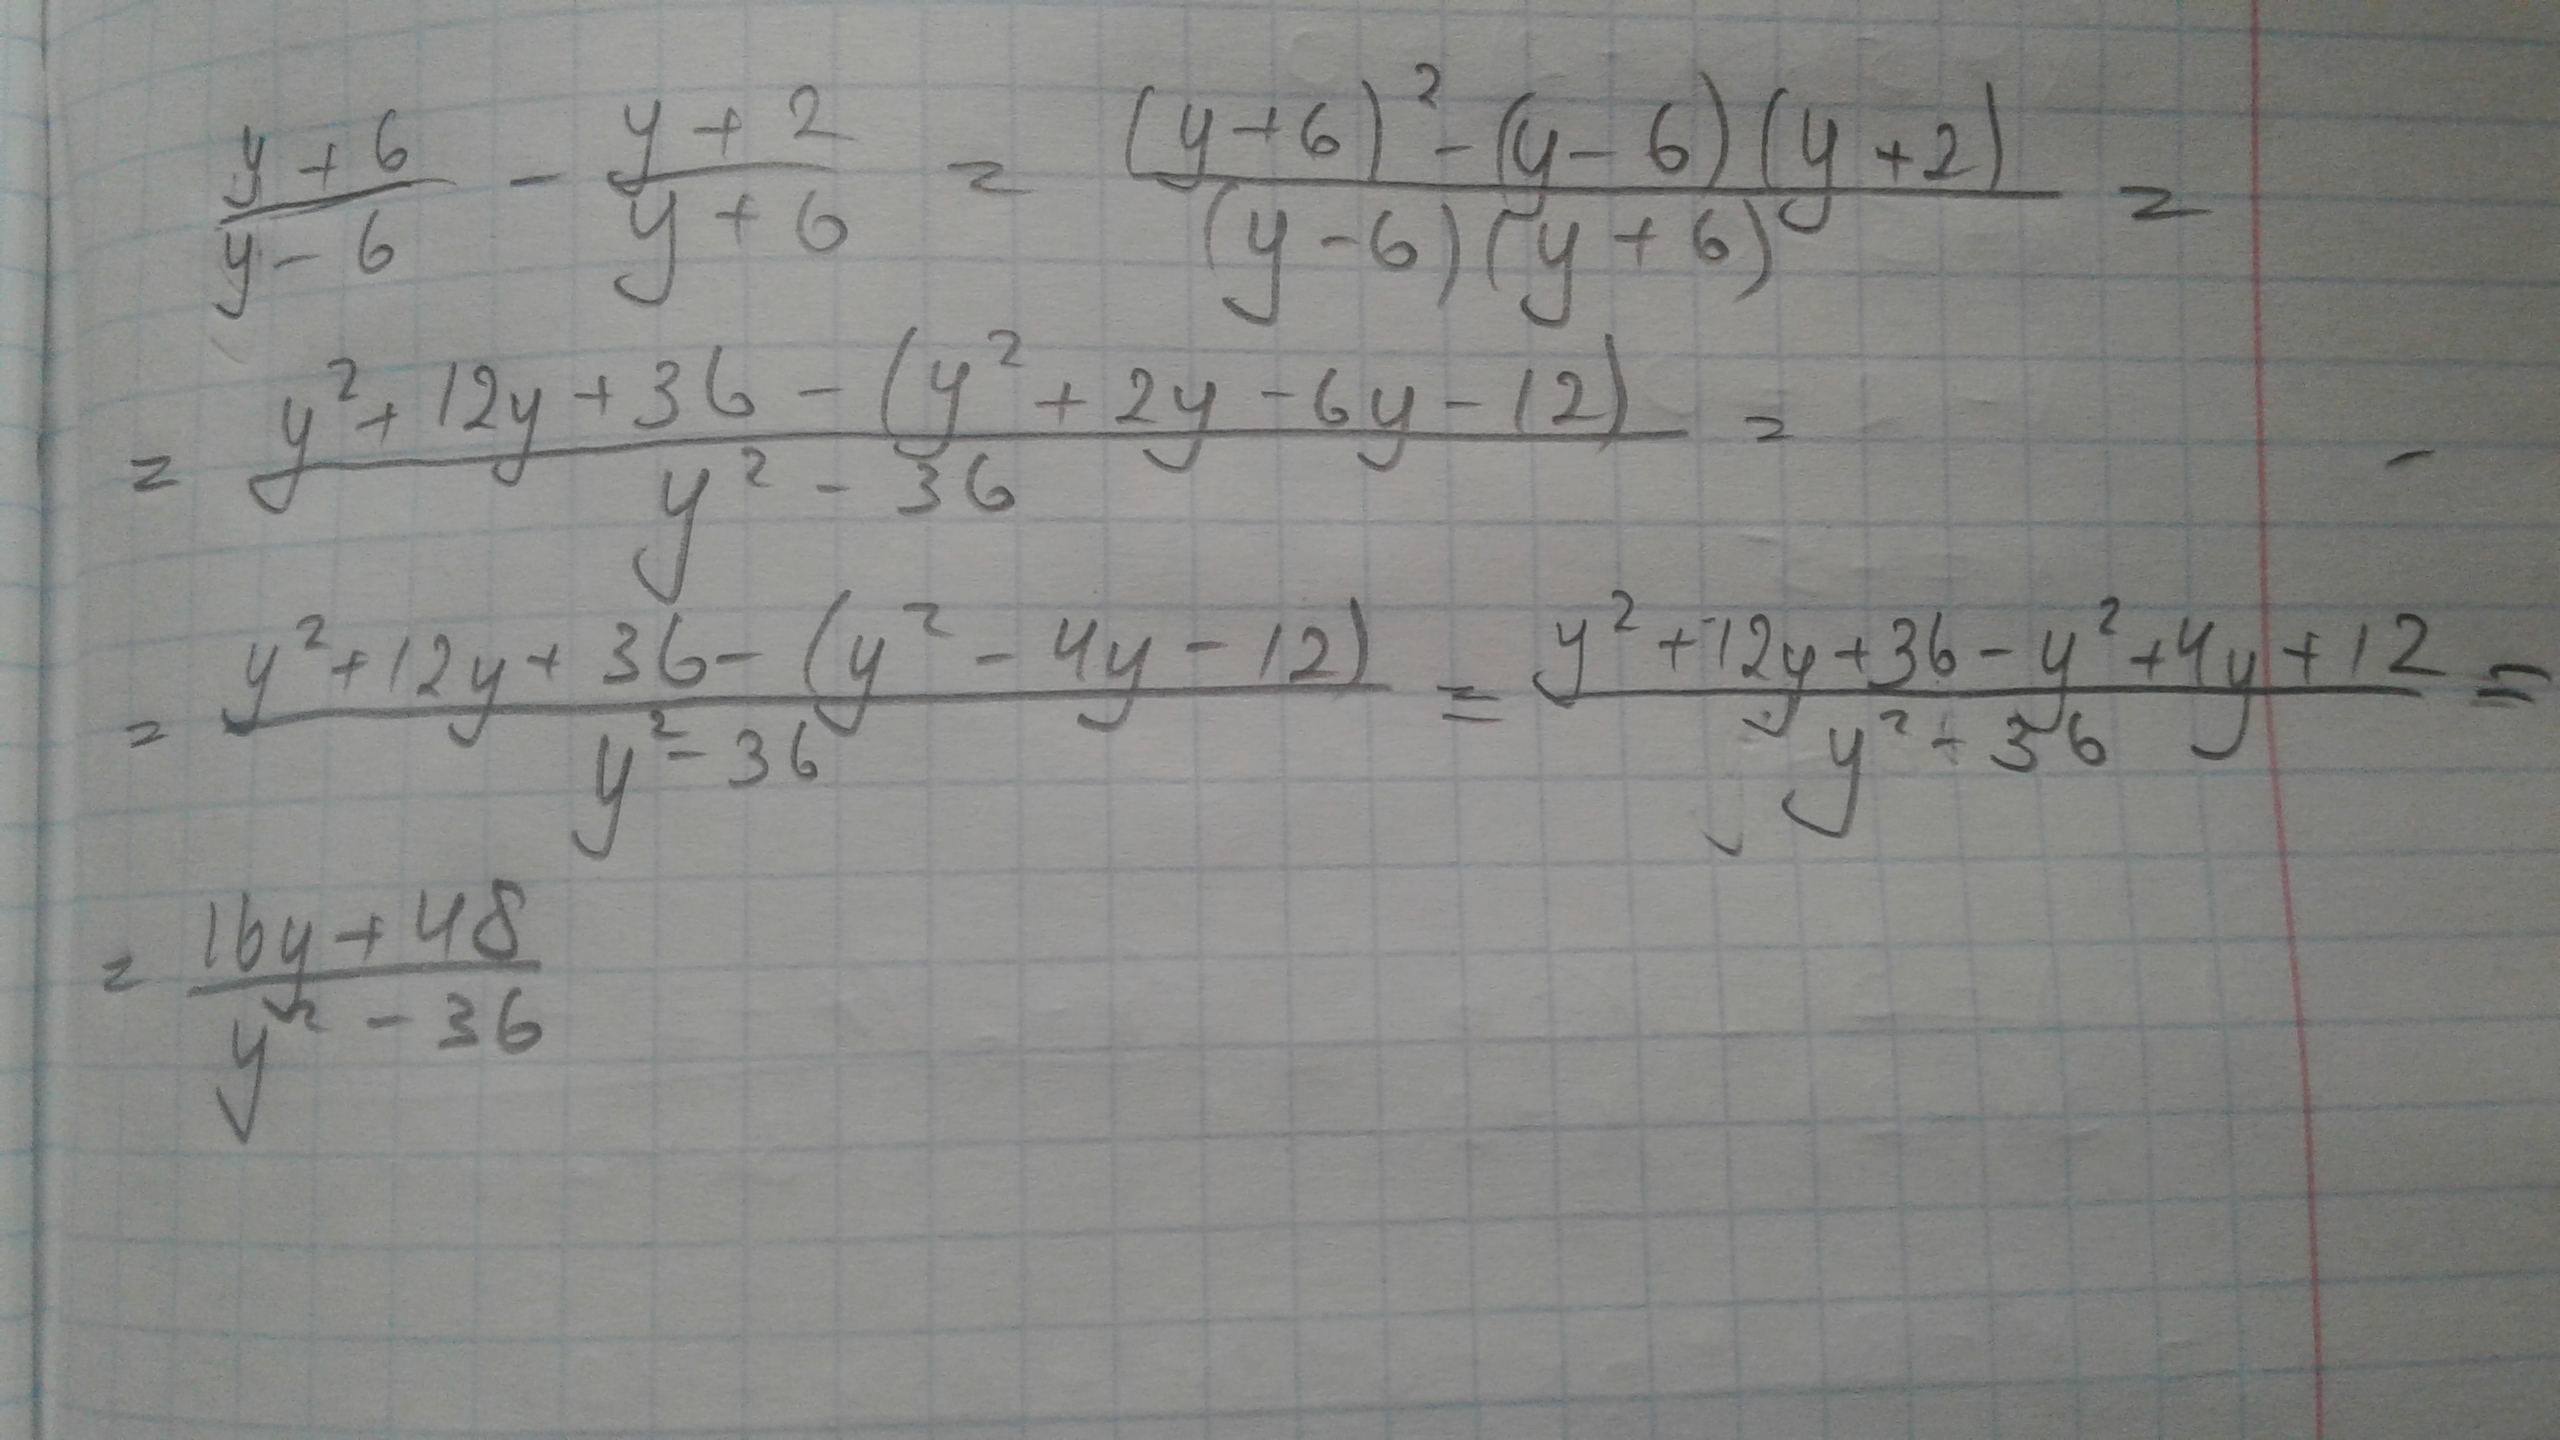 (y+6)/(y-6) - (y+2)/(y+6) = ((y+6)² - (y-6)(y+2))/((y-6)(y+6)) =
= (y²+12y+36-(y²+2y-6y-12))/(y²-36) =
= (y²+12y+36-(y²-4y-12))/(y²-36) = (y²+12y+36-y²+4y+12)/(y²-36) =
= (16y+48)/(y²-36)